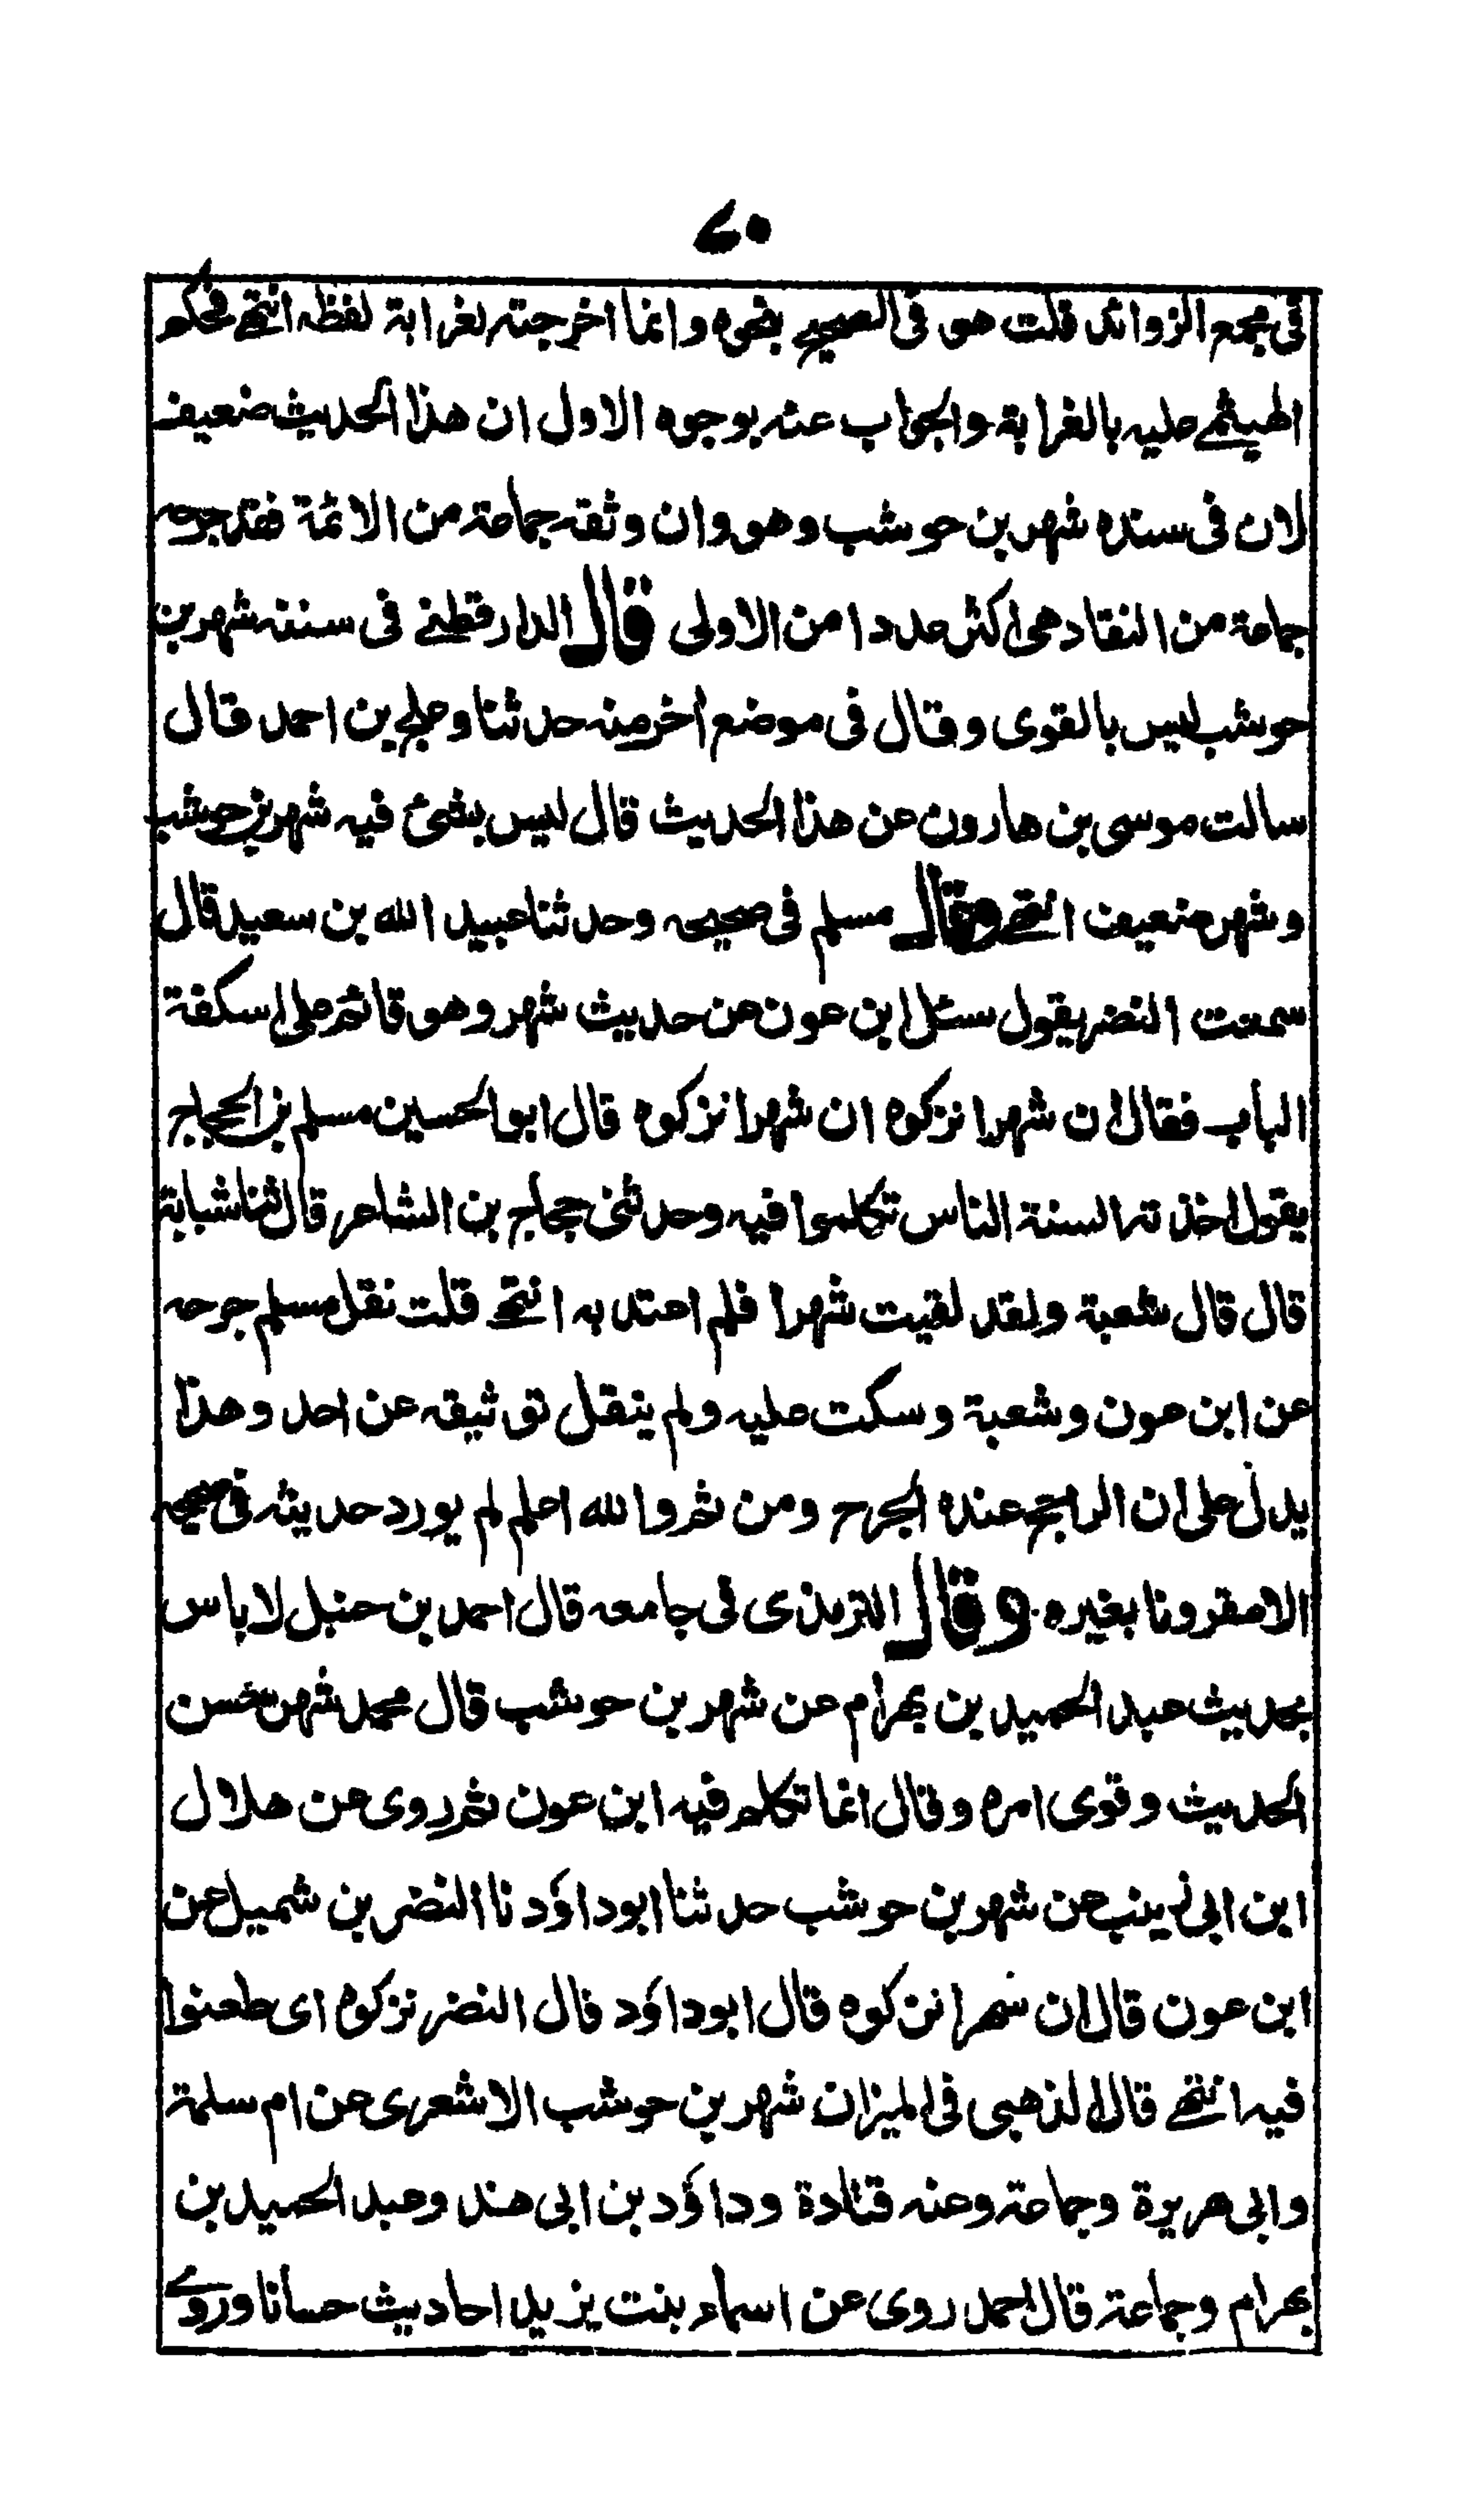 ٤٠
فى مجمع الزوائد قلت هو فى الصحيح بنحوه وانما اخرجته لغرابة لفظه انتهے فحكم
الهيثمے عليه بالغرابة والجواب عنه بوجوه الاول ان هذا الحديث ضعيف
لان فى سنده شهر بن حوشب وهو وان وثقه جماعة من الائمة فقد جرحه
جماعة من النقاد هى اكثر عددا من الاولى قال الدارقطنے فى سننه شهر بن
حوشب ليس بالقوى وقال فى موضع اخر منه حدثنا دعلج بن احمد قال
سالت موسى بن هارون عن هذا الحديث قال ليس بشئ فيه شهر بن حوشب
وشهر ضعيف انتهے وقال مسلم فى صحيحه وحدثنا عبيد الله بن سعيد قال
سمعت النضر يقول سئل ابن عون عن حديث شهر وهو قائم على اسكفة
الباب فقال ان شهرا نزكوه ان شهرا نزكوه قال ابو الحسين مسلم بن الحجاج
يقول اخذته السنة الناس تكلموا فيه وحدثنى حجاج بن الشاعر قال ثنا شبابة
قال قال شعبة ولقد لقيت شهرا فلم اعتد به انتهے قلت نقل مسلم جرحه
عن ابن عون وشعبة وسكت عليه ولم ينقل توثيقه عن احد وهذا
يدل على ان الراجح عنده الجرح ومن ثم والله اعلم لم يورد حديثه فى صحيحه
الا مقرونا بغيره وقال الترمذى فى جامعه قال احمد بن حنبل لا باس
بحديث عبد الحميد بن بهرام عن شهر بن حوشب قال محمد شهر حسن
الحديث وقوى امره وقال انما تكلم فيه ابن عون ثم روى عن هلال
ابن ابى زينب عن شهر بن حوشب حدثنا ابو داؤد نا النضر بن شميل عن
ابن عون قال ان شهرا نزكوه قال ابو داؤد قال النضر نزكوه اى طعنوا
فيه انتهے قال الذهبى فى الميزان شهر بن حوشب الاشعرى عن ام سلمة
وابى هريرة وجماعة وعنه قتادة وداؤد بن ابى هند وعبد الحميد بن
بهرام وجماعة قال احمد روى عن اسماء بنت يزيد احاديث حسانا وروے